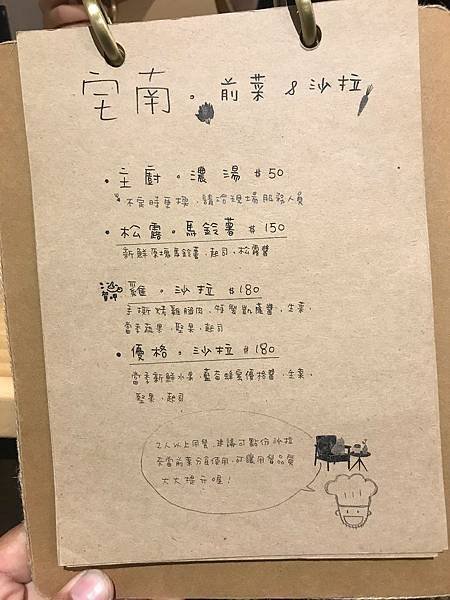 宅南。前菜&沙拉
主廚。濃湯 #50
不定時更換,請洽現場服務人員
松露。馬鈴薯 #150
新鮮原塊馬鈴薯,起司,松露醬
雞。沙拉 #180
手撕烤雞腿肉,特製凱薩醬,生菜,
當季蔬果,堅果,起司
優格。沙拉 #180
當季新鮮水果,藍莓蜂蜜優格醬,生菜,
堅果,起司
2人以上用餐,建議可點份沙拉
來當前菜分食使用,可讓用餐品質
大大提示喔!